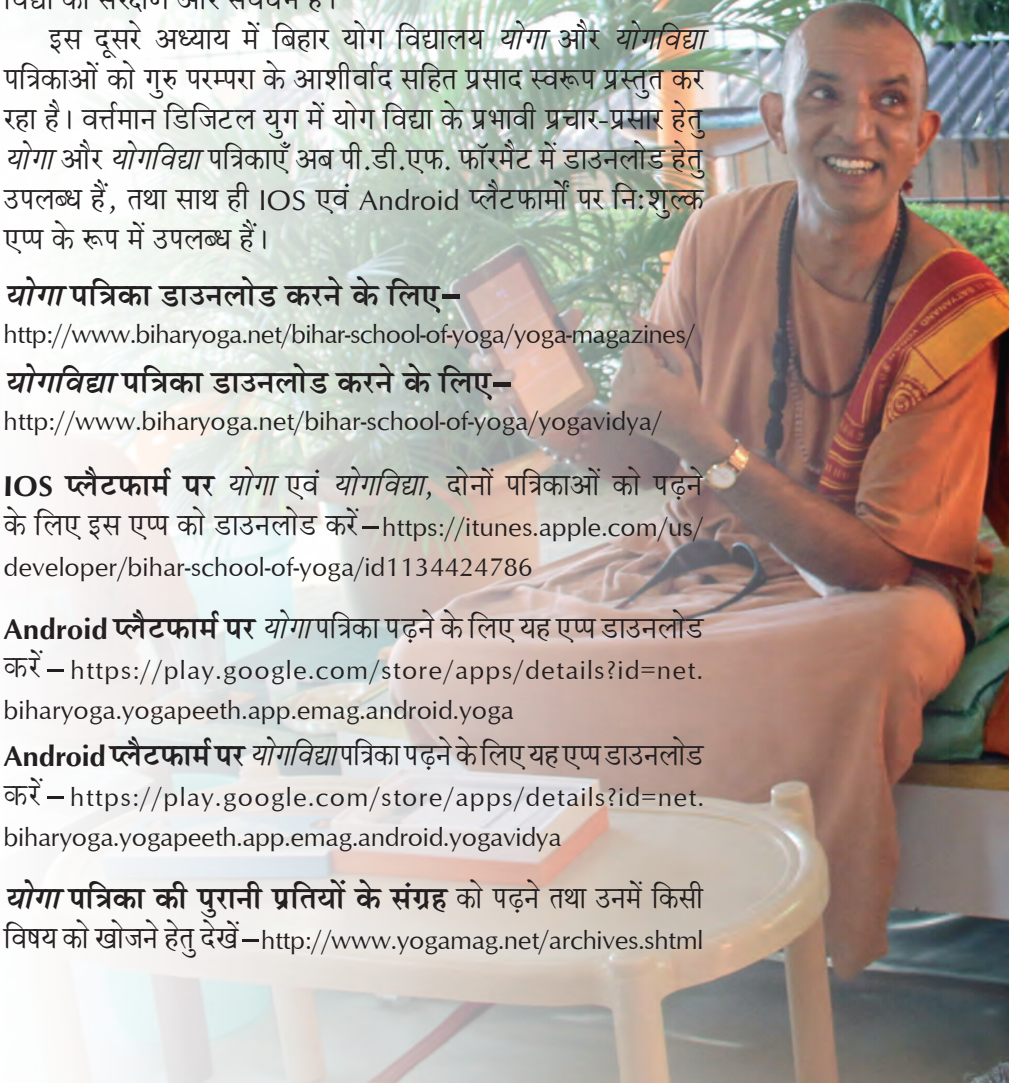 विद्या का संरक्षण और संवर्धन है।
इस दूसरे अध्याय में बिहार योग विद्यालय योगा और योगविद्या
पत्रिकाओं को गुरु परम्परा के आशीर्वाद सहित प्रसाद स्वरूप प्रस्तुत कर
रहा है। वर्त्तमान डिजिटल युग में योग विद्या के प्रभावी प्रचार-प्रसार हेतु
योगा और योगविद्या पत्रिकाएँ अब पी.डी.एफ. फॉरमैट में डाउनलोड हेतु
उपलब्ध हैं, तथा साथ ही IOS एवं Android प्लैटफार्मों पर नि:शुल्क
एप्प के रूप में उपलब्ध हैं।
योगा पत्रिका डाउनलोड करने के लिए–
http://www.biharyoga.net/bihar-school-of-yoga/yoga-magazines/
योगविद्या पत्रिका डाउनलोड करने के लिए–
http://www.biharyoga.net/bihar-school-of-yoga/yogavidya/
IOS प्लैटफार्म पर योगा एवं योगविद्या, दोनों पत्रिकाओं को पढ़ने
के लिए इस एप्प को डाउनलोड करें–https://itunes.apple.com/us/
developer/bihar-school-of-yoga/id1134424786
Android प्लैटफार्म पर योगा पत्रिका पढ़ने के लिए यह एप्प डाउनलोड
करें – https://play.google.com/store/apps/details?id=net.
biharyoga.yogapeeth.app.emag.android.yoga
Android प्लैटफार्म पर योगविद्या पत्रिका पढ़ने के लिए यह एप्प डाउनलोड
करें – https://play.google.com/store/apps/details?id=net.
biharyoga.yogapeeth.app.emag.android.yogavidya
योगा पत्रिका की पुरानी प्रतियों के संग्रह को पढ़ने तथा उनमें किसी
विषय को खोजने हेतु देखें–http://www.yogamag.net/archives.shtml